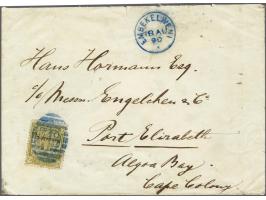 EMBEKELWENI
18 AU
90
Hans Hormann Esq.
c/o Messrs. Engelchen & Co
Port Elizabeth
Algoa Bay.
Cape Colony